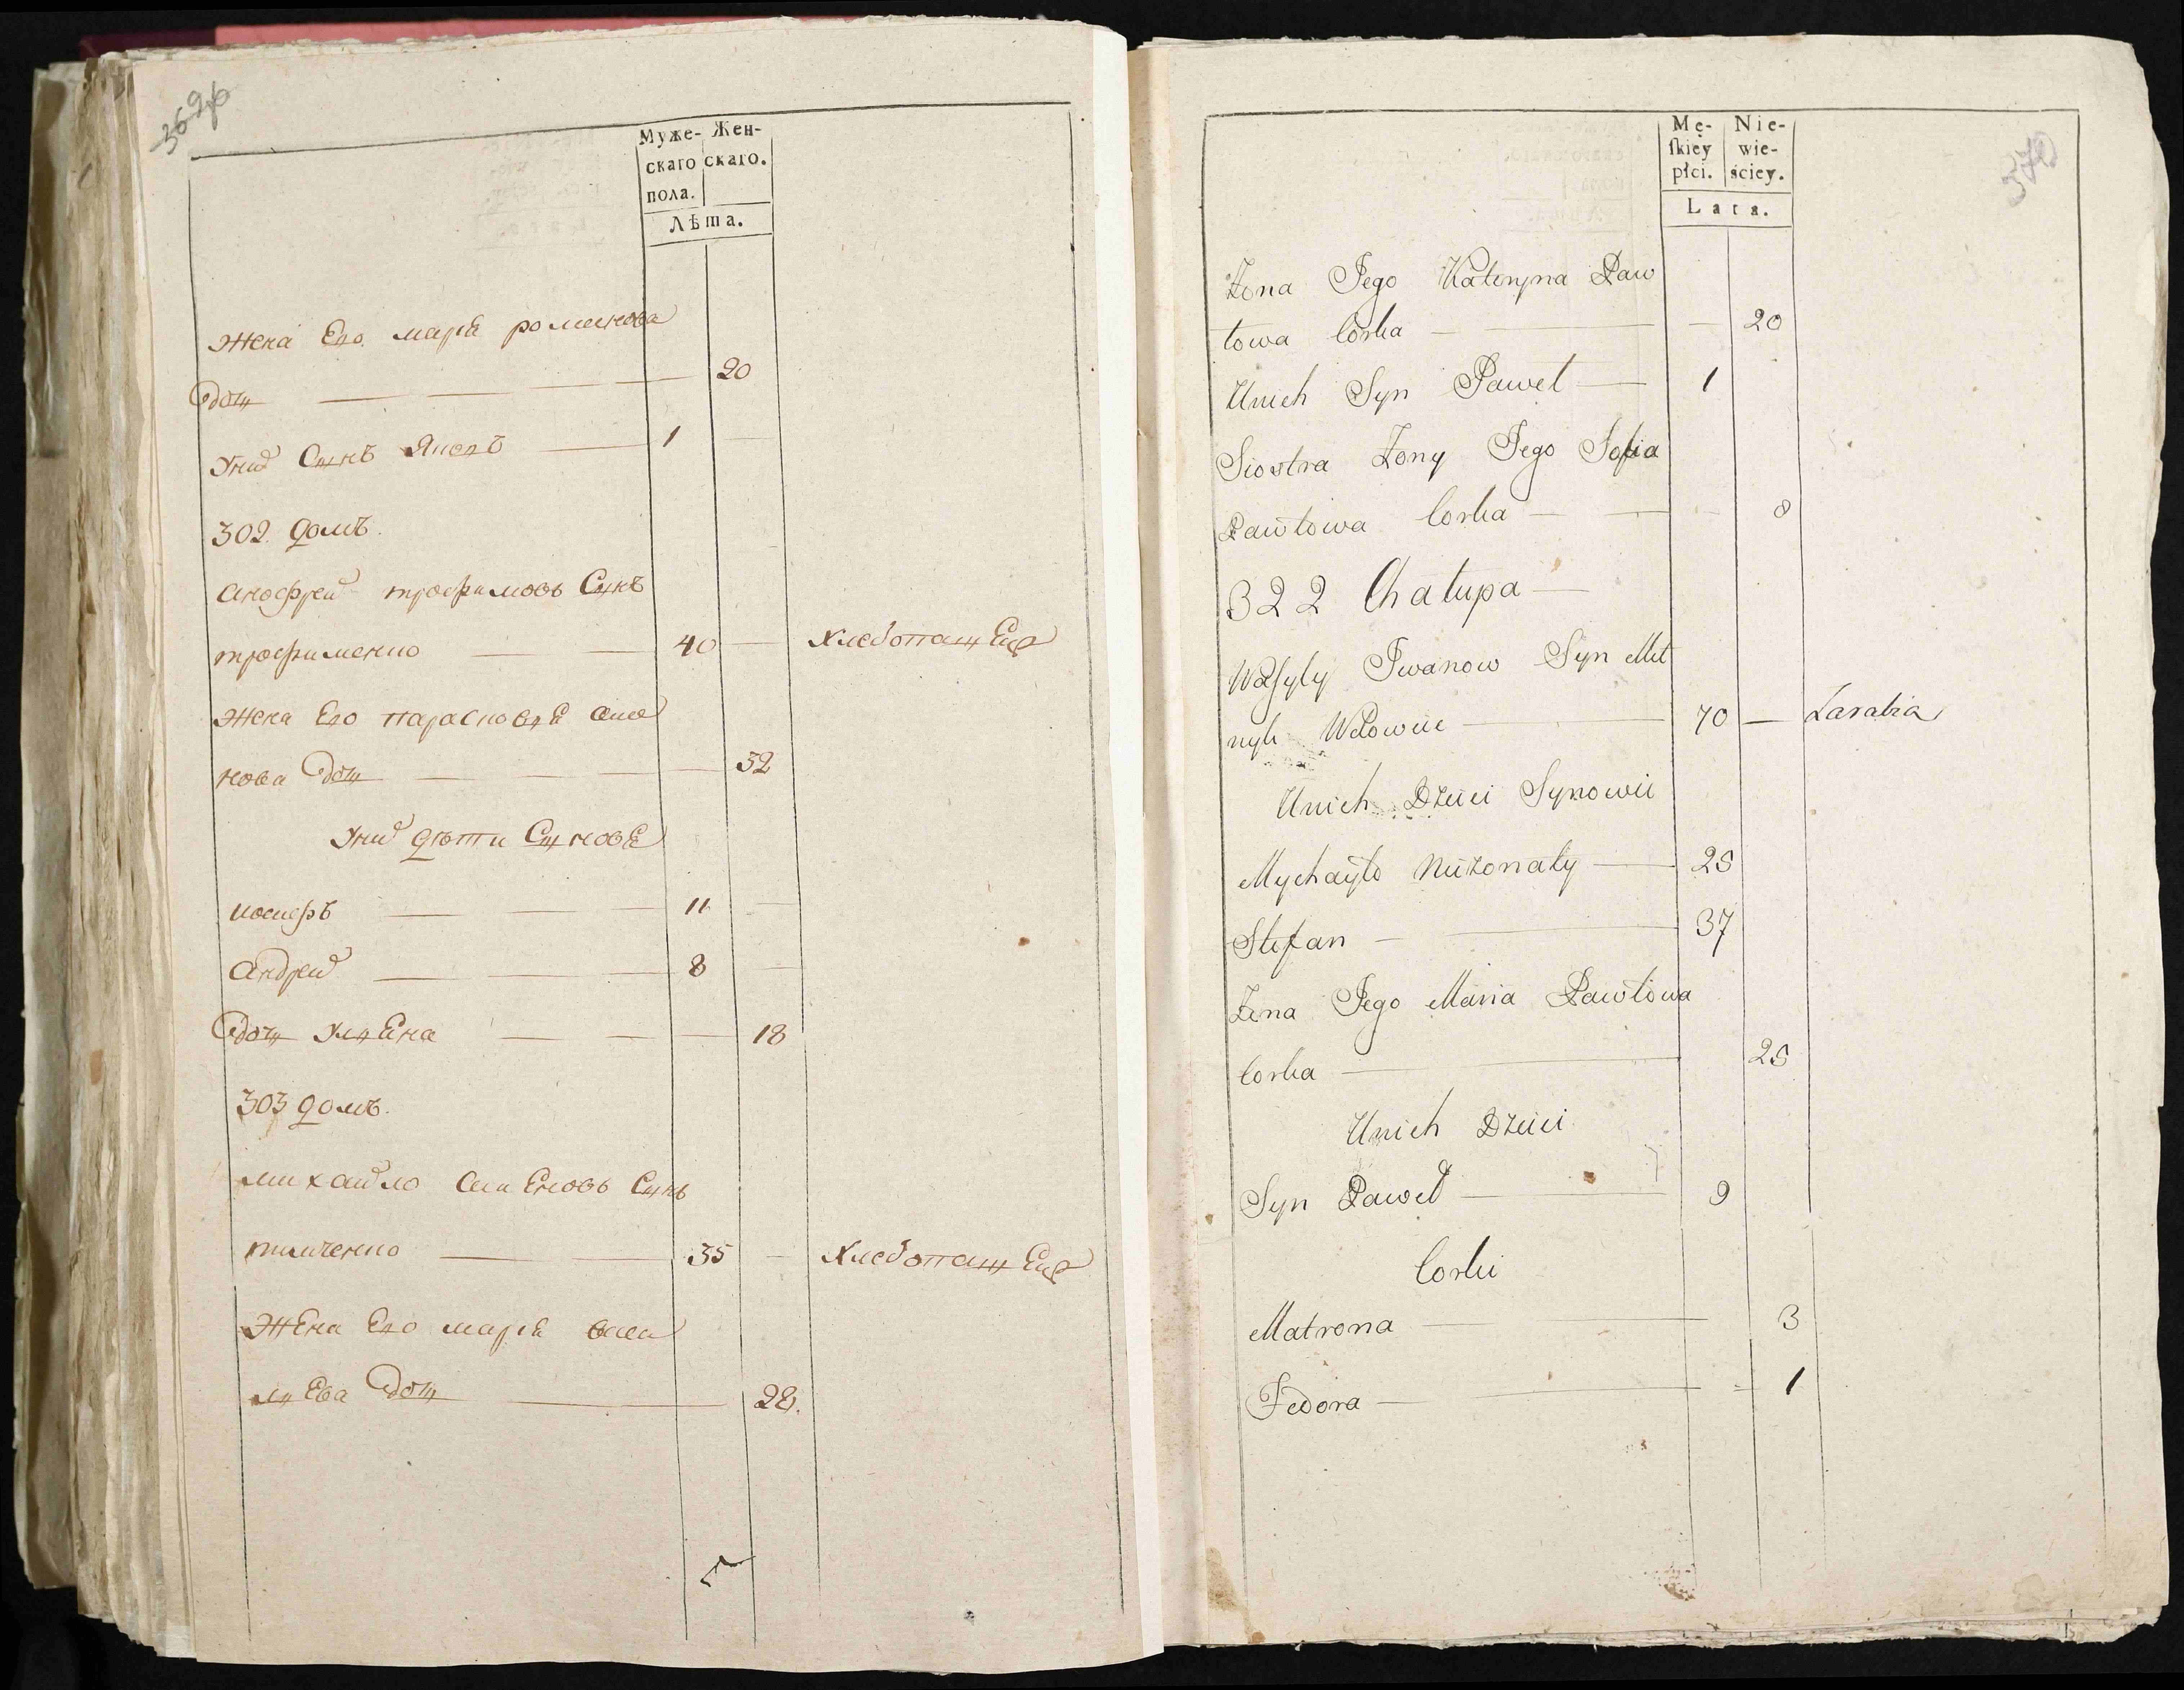 369об
Муже- Жен-
скаго скаго.
пола.
Лѣта.
жена Его марія романова
дочь — — — 20
Уних Сынъ Яковъ — 1 —
302. домъ.
Анофрей трофимовъ Сынъ
трофименко — — 40 — хлебопашец
жена Его парасковія Симо
нова дочь — — — 32
Уних дѣти Сыновя
иосифъ — — — 11 —
Андрей — — — 8 —
дочь Улияна — — — 18
303 домъ.
михайло Симеоновъ Сынъ
тимченко — 35 — хлебопашец
Жена Его марія васи
лиева дочь — 28.
370
Mę- Nie-
skiey wie-
płci. ściey.
Lata.
Żona Jego Kateryna Paw
łowa Corka — — — 20
Unich Syn Paweł — 1
Siostra Żony Jego Sofia
Pawłowa Corka — — — 8
322 Chałupa —
Wasyly Iwanow Syn Mel
nyk Wdowiec — 70 — Zarabia
Unich Dzieci Synowie
Mychayło Nieżonaty — 25
Stefan — — 37
Żena Jego Maria Pawłowa
Corka — 25
Unich Dzieci
Syn Paweł — 9
Corki
Matrona — 3
Fedora — — - 1